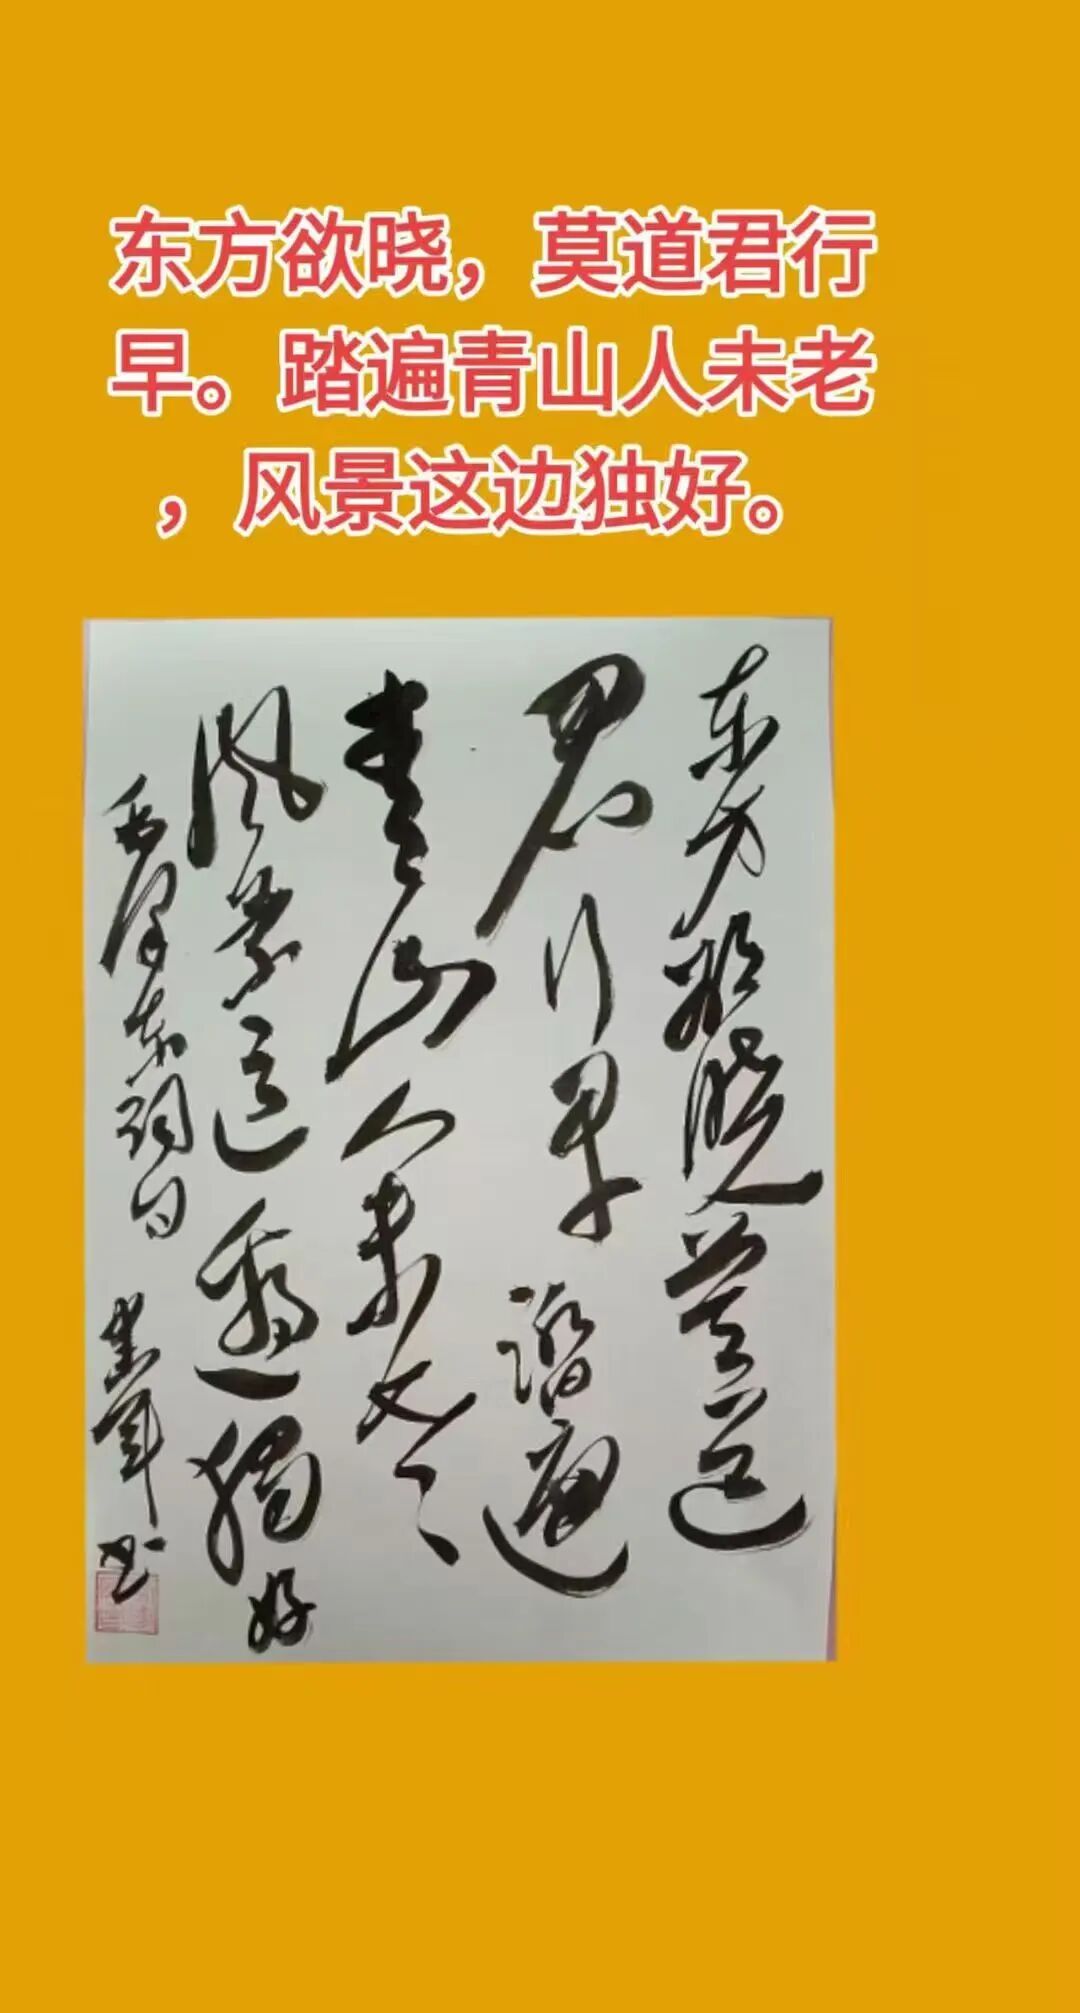 东方欲晓，莫道君行
早。踏遍青山人未老
，风景这边独好。
东方欲晓莫道
君行早踏遍
青山人未老
风景这边独好
毛泽东词句
书